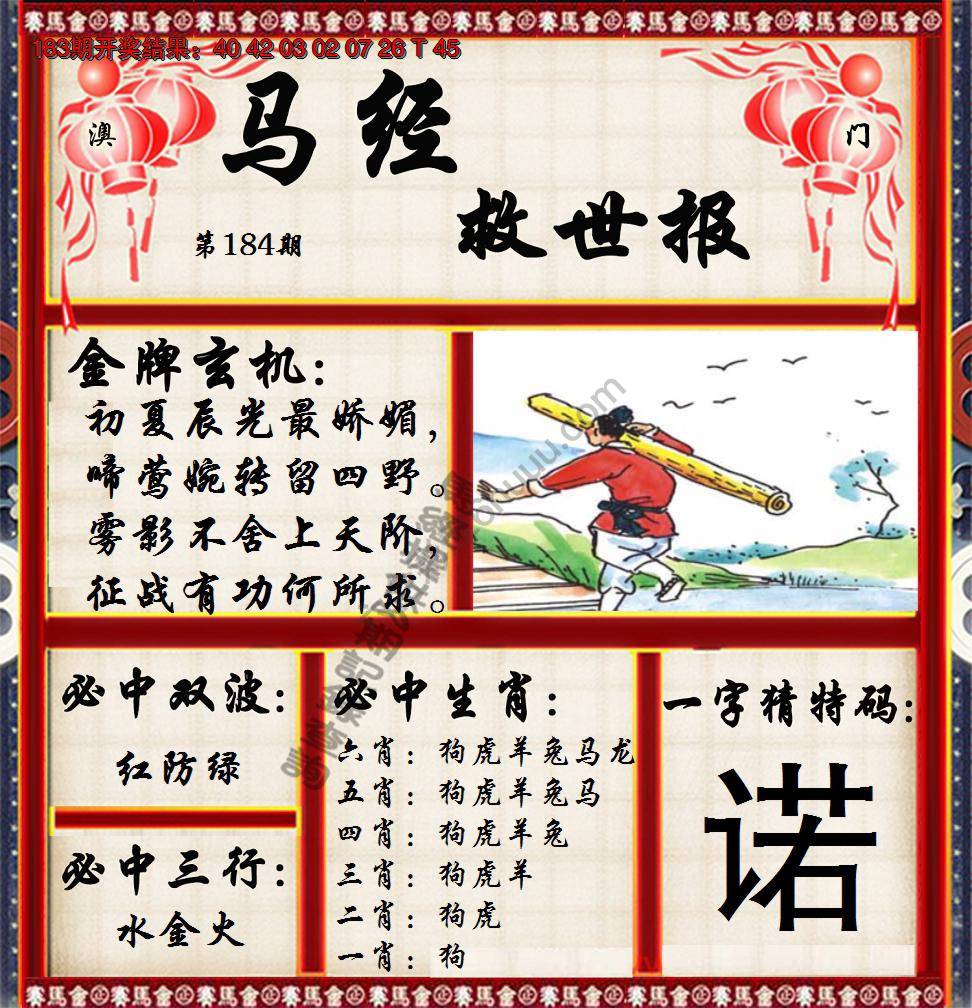 赛馬會 赛馬會 赛馬會 赛馬會 赛馬會 赛馬會 赛馬會 赛馬會
183期开奖结果：40 42 03 02 07 26 T 45
澳
门
马经
救世报
第184期
金牌玄机：
初夏辰光最娇媚，
啼莺婉转留四野。
雾影不舍上天阶，
征战有功何所求。
必中双波：
红防绿
必中三行：
水金火
必中生肖：
六肖：狗虎羊兔马龙
五肖：狗虎羊兔马
四肖：狗虎羊兔
三肖：狗虎羊
二肖：狗虎
一肖：狗
一字猜特码：
诺